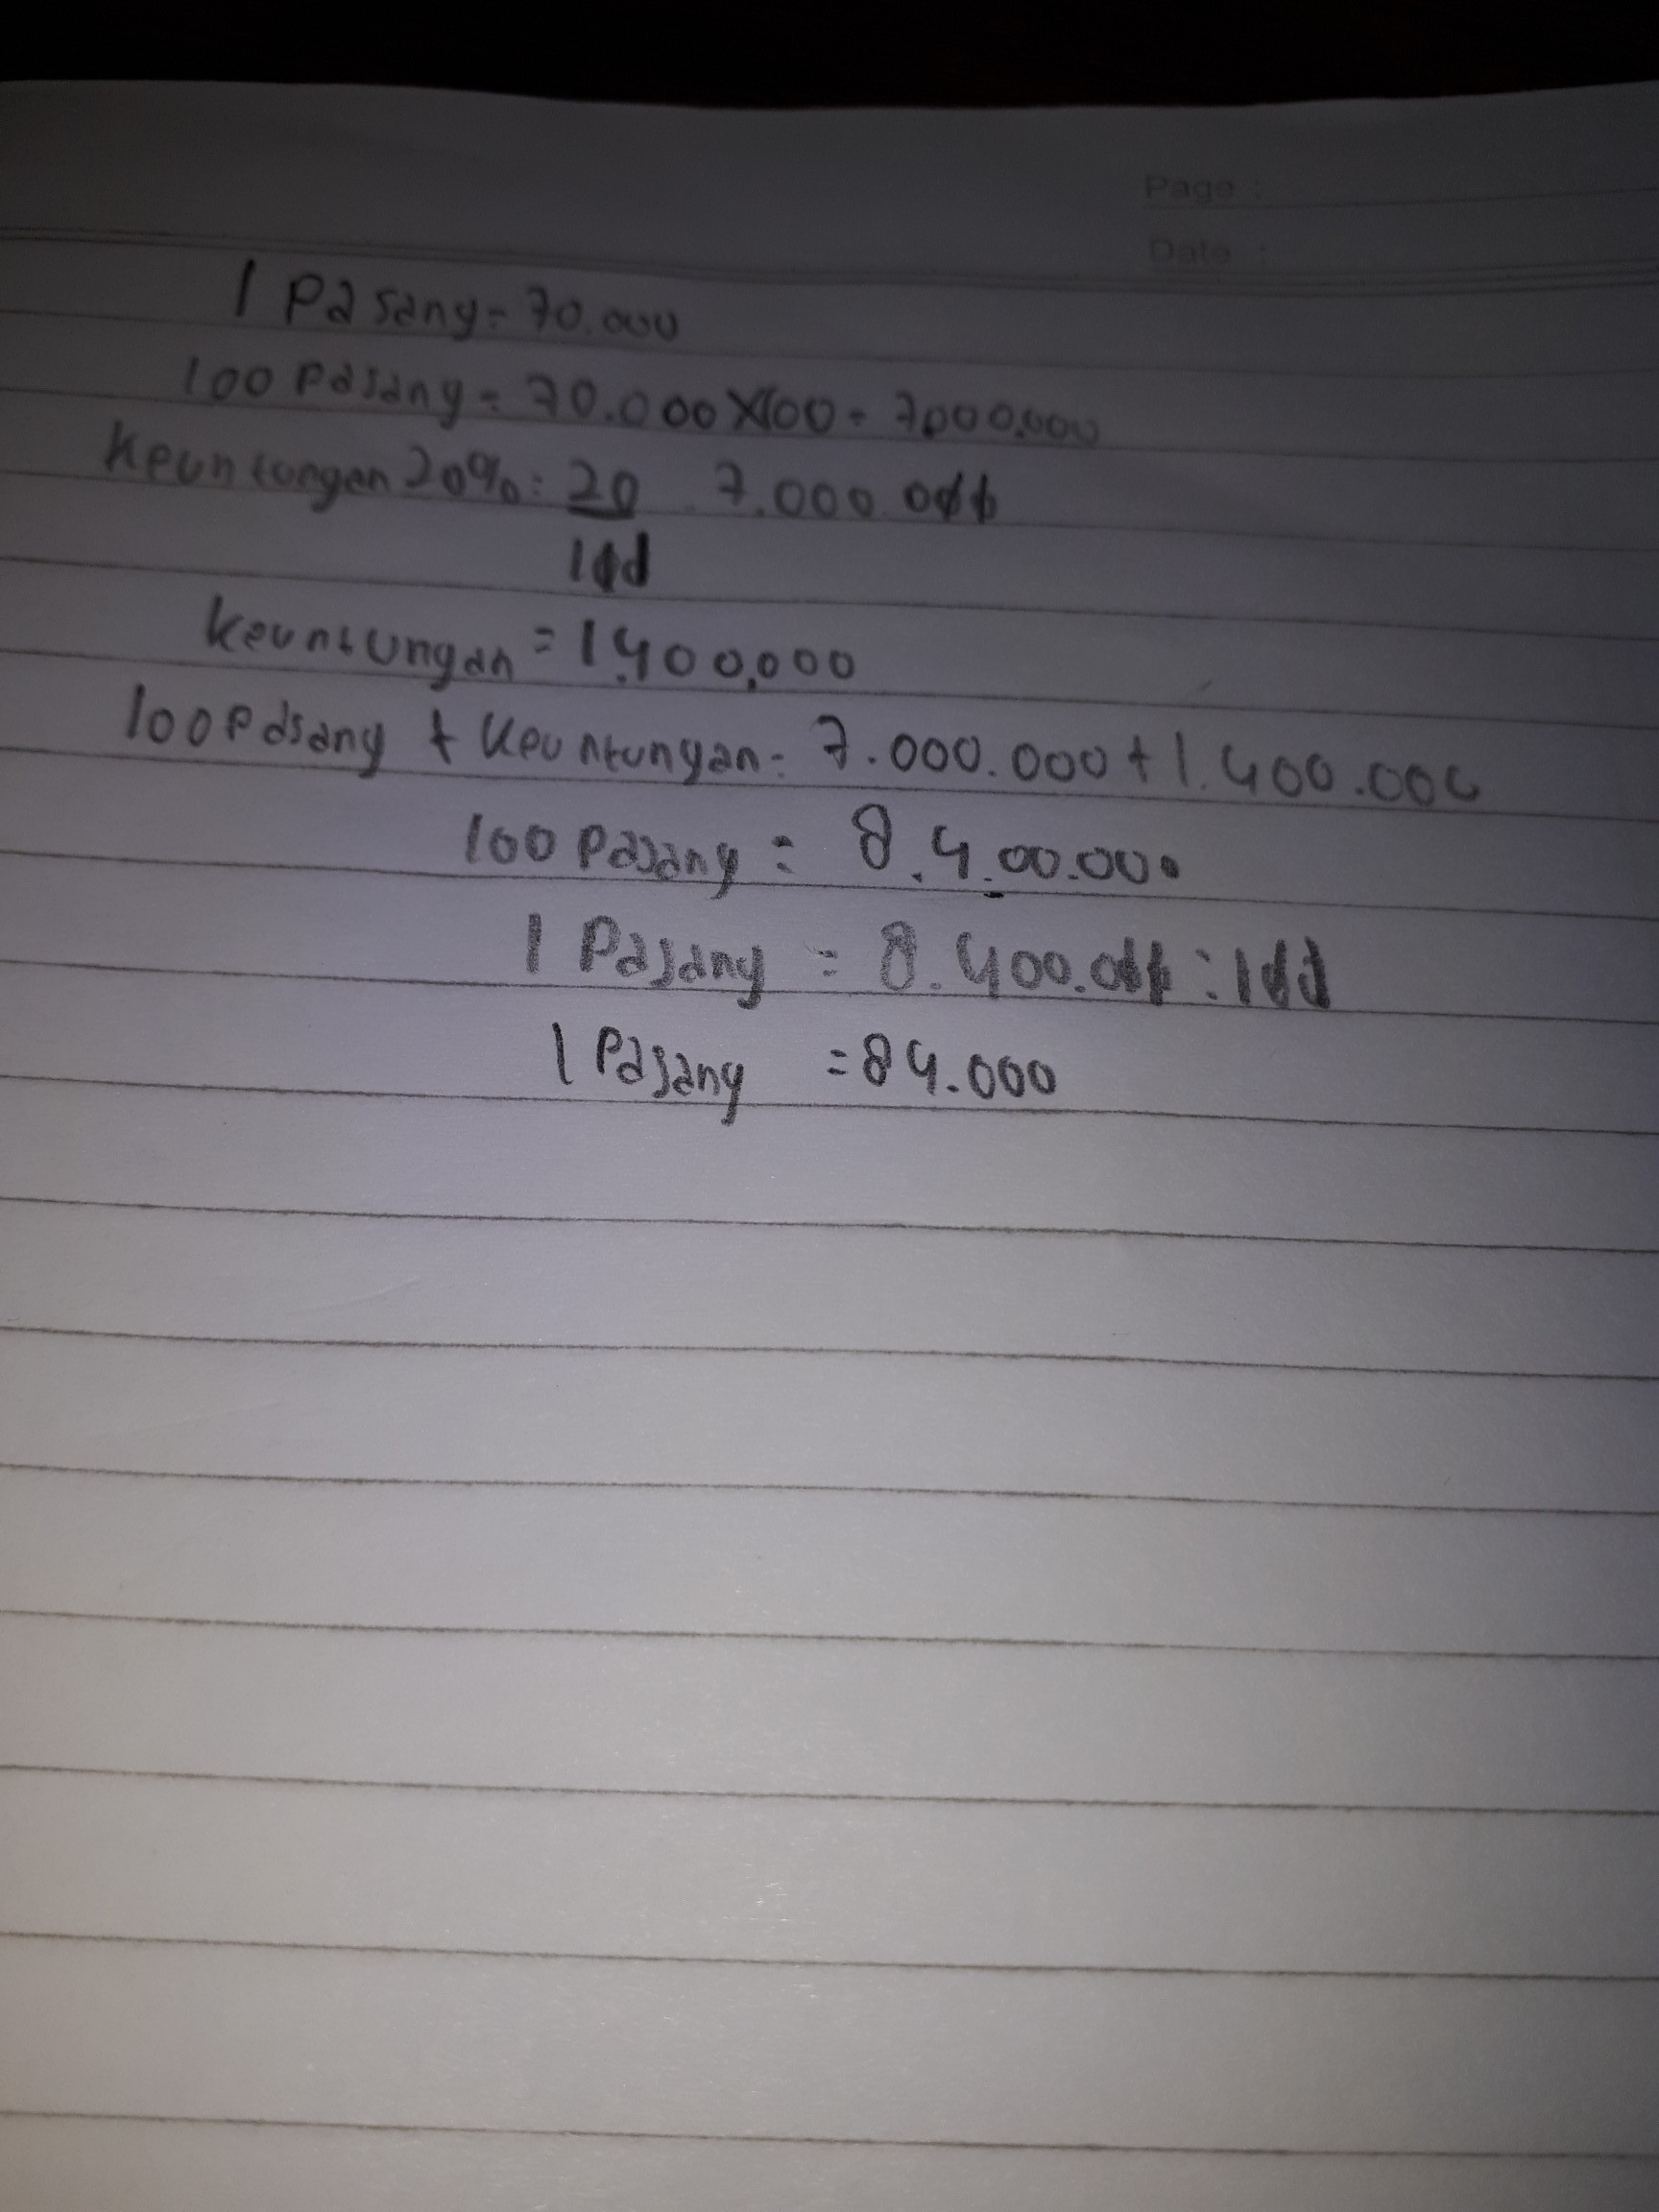 Page :
Date :
1 Pasang = 70.000
100 Pasang = 70.000 X100 = 7000.000
Keuntungan 20% : 20 . 7.000.000
100
Keuntungan = 1.400.000
100 Pasang + Keuntungan = 7.000.000 + 1.400.000
100 Pasang = 8.400.000
1 Pasang = 8.400.000 : 100
1 Pasang = 84.000